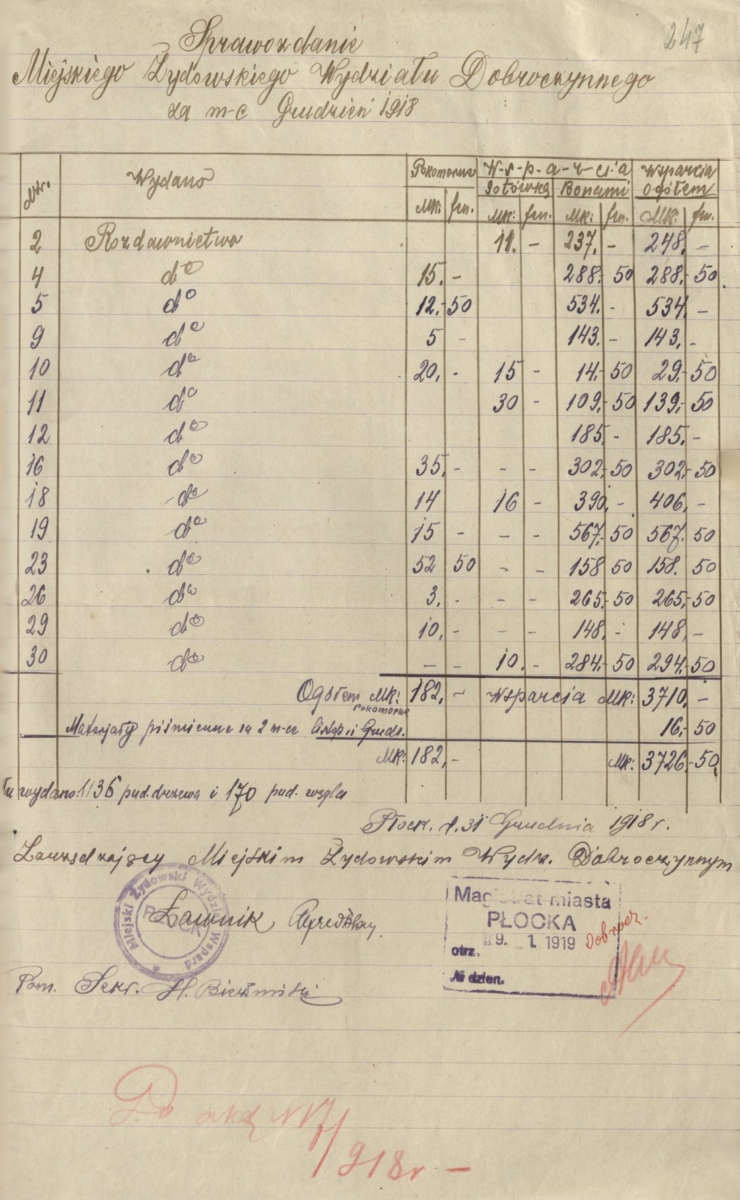 247
Sprawozdanie
Miejskiego Żydowskiego Wydziału Dobroczynnego
za m-c Grudzień 1918
Wydano Pokomorne W-s-p-a-r-c-i-a Wsparcia
Gotówką Bonami Ogółem
Mk: fen. Mk: fen. Mk: fen. Mk: fen.
2 Rozdawnictwo 11. - 237. - 248. -
4 do 15. - 288. 50 288. 50
5 do 12. 50 534. - 534. -
9 do 5 - 143. - 143. -
10 do 20. - 15 - 14. 50 29. 50
11 do 30 - 109. 50 139. 50
12 do 185. - 185. -
16 do 35. - - - 302. 50 302. 50
18 do 14 16 - 390. - 406. -
19 do 15 - - - 567. 50 567. 50
23 do 52 50 - - 158 50 158. 50
26 do 3. - - - 265. 50 265. 50
29 do 10. - - - 148. - 148. -
30 do - - 10. - 284. 50 294. 50
Ogółem Mk: 182. - Wsparcia Mk: 3710. -
pokomorne
Materjały piśmienne za 2 m-ce listop. i Grudz. 16. 50
Mk: 182. - Mk: 3726. 50
wydano 1136 pud. drzewa i 170 pud. węgla
Płock, d. 31 Grudnia 1918 r.
Zarządzający Miejskim Żydowskim Wydz. Dobroczynnym
Miejski Żydowski Wydział
Ławnik
Magistrat miasta
PŁOCKA
9. 1 1919 Dobrocz.
otrz.
№ dzien.
Pom. Sekr. H.
Do akt
918 r -